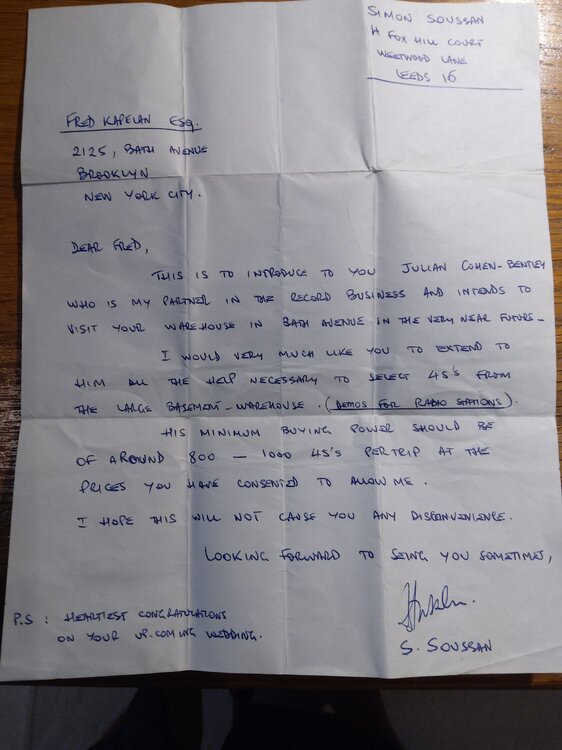 SIMON SOUSSAN
14 FOX HILL COURT
WEETWOOD LANE
LEEDS 16
FRED KAPELAN ESQ.
2125, BATH AVENUE
BROOKLYN
NEW YORK CITY.
DEAR FRED,
THIS IS TO INTRODUCE TO YOU JULIAN COHEN-BENTLEY
WHO IS MY PARTNER IN THE RECORD BUSINESS AND INTENDS TO
VISIT YOUR WAREHOUSE IN BATH AVENUE IN THE VERY NEAR FUTURE-
I WOULD VERY MUCH LIKE YOU TO EXTEND TO
HIM ALL THE HELP NECESSARY TO SELECT 45'S FROM
THE LARGE BASEMENT-WAREHOUSE. (DEMOS FOR RADIO STATIONS).
HIS MINIMUM BUYING POWER SHOULD BE
OF AROUND 800 — 1000 45'S PER TRIP AT THE
PRICES YOU HAVE CONSENTED TO ALLOW ME.
I HOPE THIS WILL NOT CAUSE YOU ANY DISCONVENIENCE.
LOOKING FORWARD TO SEING YOU SOMETIMES,
S. SOUSSAN
P.S : HEARTIEST CONGRATULATIONS
ON YOUR UP-COMING WEDDING.